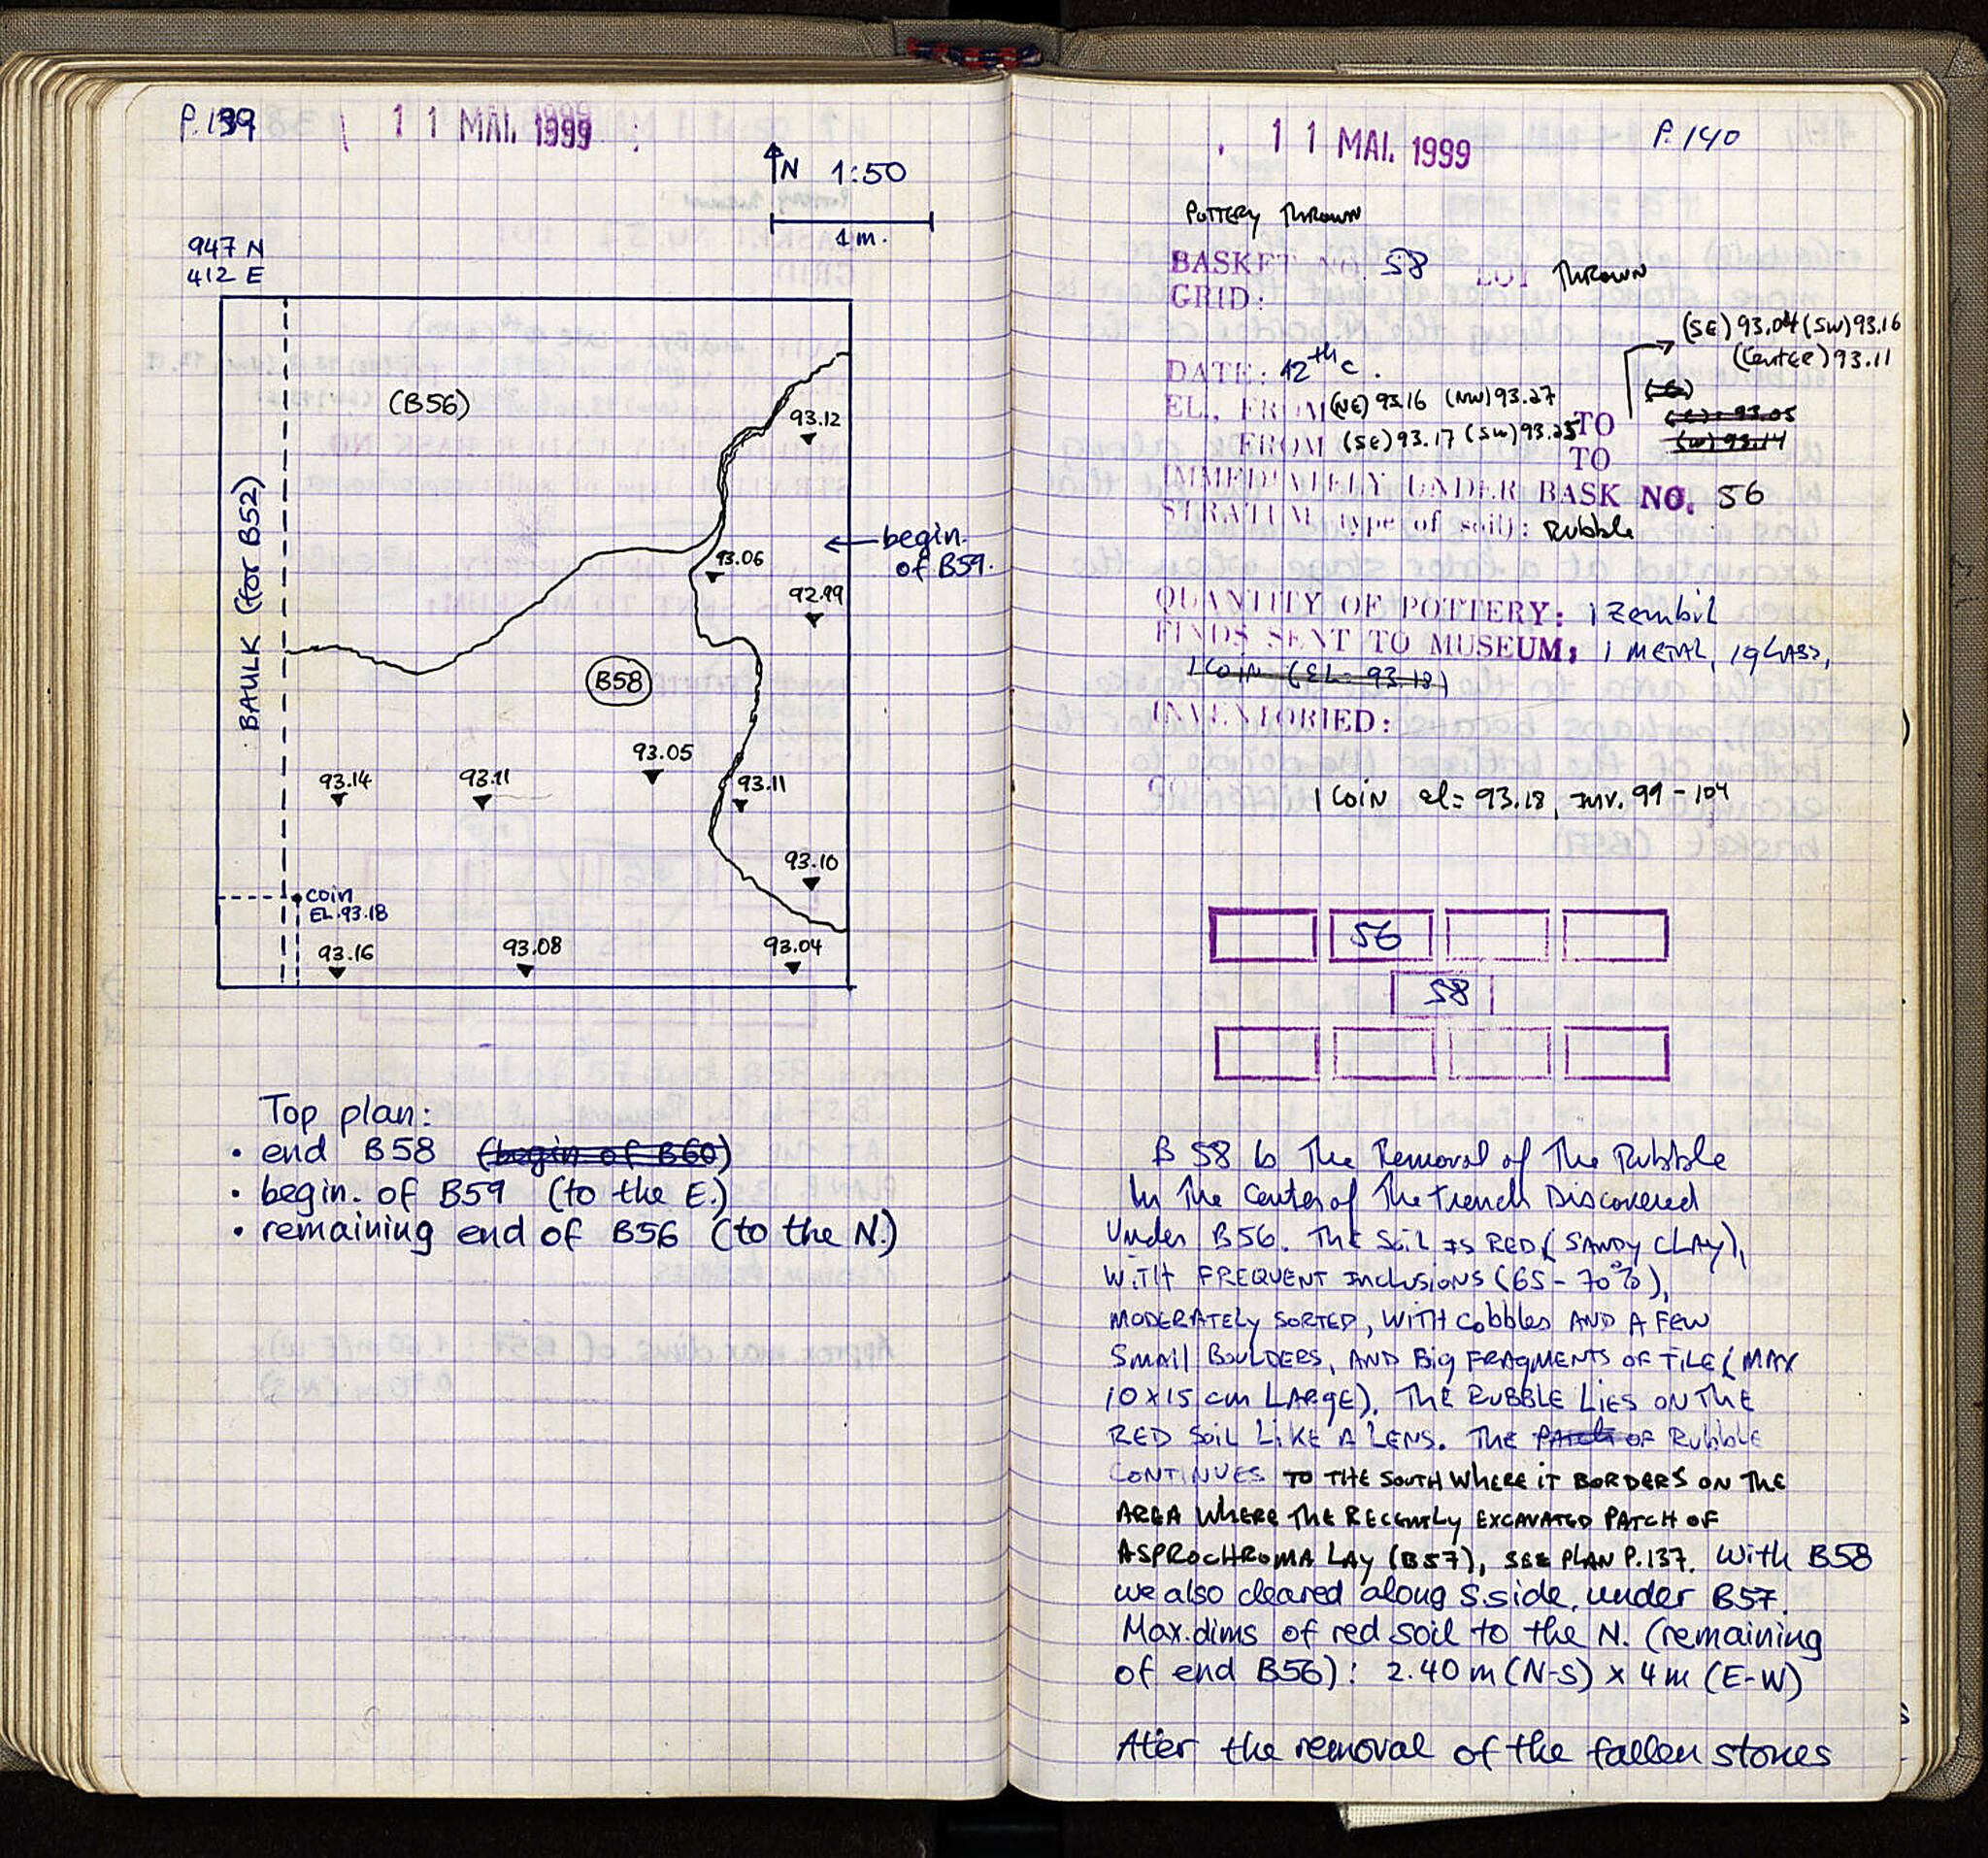 P. 139
11 MAI. 1999
N 1:50
1 m.
947 N
412 E
(B56)
93.12
BAULK (for B52)
begin.
of B59.
93.06
92.99
B58
93.05
93.14
93.11
93.11
93.10
coin
EL. 93.18
93.16
93.08
93.04
Top plan:
• end B58 (begin of B60)
• begin. of B59 (to the E.)
• remaining end of B56 (to the N.)
11 MAI. 1999
P. 140
POTTERY THROWN
BASKET NO. 58 LOT THROWN
GRID:
(SE) 93.04 (SW) 93.16
(CENTER) 93.11
DATE: 12th c.
EL., FROM (NE) 93.16 (NW) 93.27 TO
(E) = 93.05
(W) 93.14
FROM (SE) 93.17 (SW) 93.25 TO
IMMEDIATELY UNDER BASK NO. 56
STRATUM, type of soil): Rubble
QUANTITY OF POTTERY: 1 zembil
FINDS SENT TO MUSEUM: 1 METAL, 1 GLASS,
1 COIN (EL = 93.18)
INVENTORIED:
1 COIN el = 93.18, inv. 99-104
56
58
B 58 is The Removal of The Rubble
In The Center of The trench Discovered
Under B56. THE SOIL IS RED (SANDY CLAY),
WITH FREQUENT INCLUSIONS (65-70%),
MODERATELY SORTED, WITH cobbles AND A FEW
SMALL BOULDERS, AND BIG FRAGMENTS OF TILE (MAX
10 x 15 cm LARGE). THE RUBBLE LIES ON THE
RED SOIL LIKE A LENS. THE PATCH OF RUBBLE
CONTINUES TO THE SOUTH WHERE IT BORDERS ON THE
AREA WHERE THE RECENTLY EXCAVATED PATCH OF
ASPROCHROMA LAY (B57), SEE PLAN P.137. With B58
we also cleared along S. side, under B57.
Max. dims of red soil to the N. (remaining
of end B56): 2.40 m (N-S) x 4 m (E-W)
Ater the removal of the fallen stones